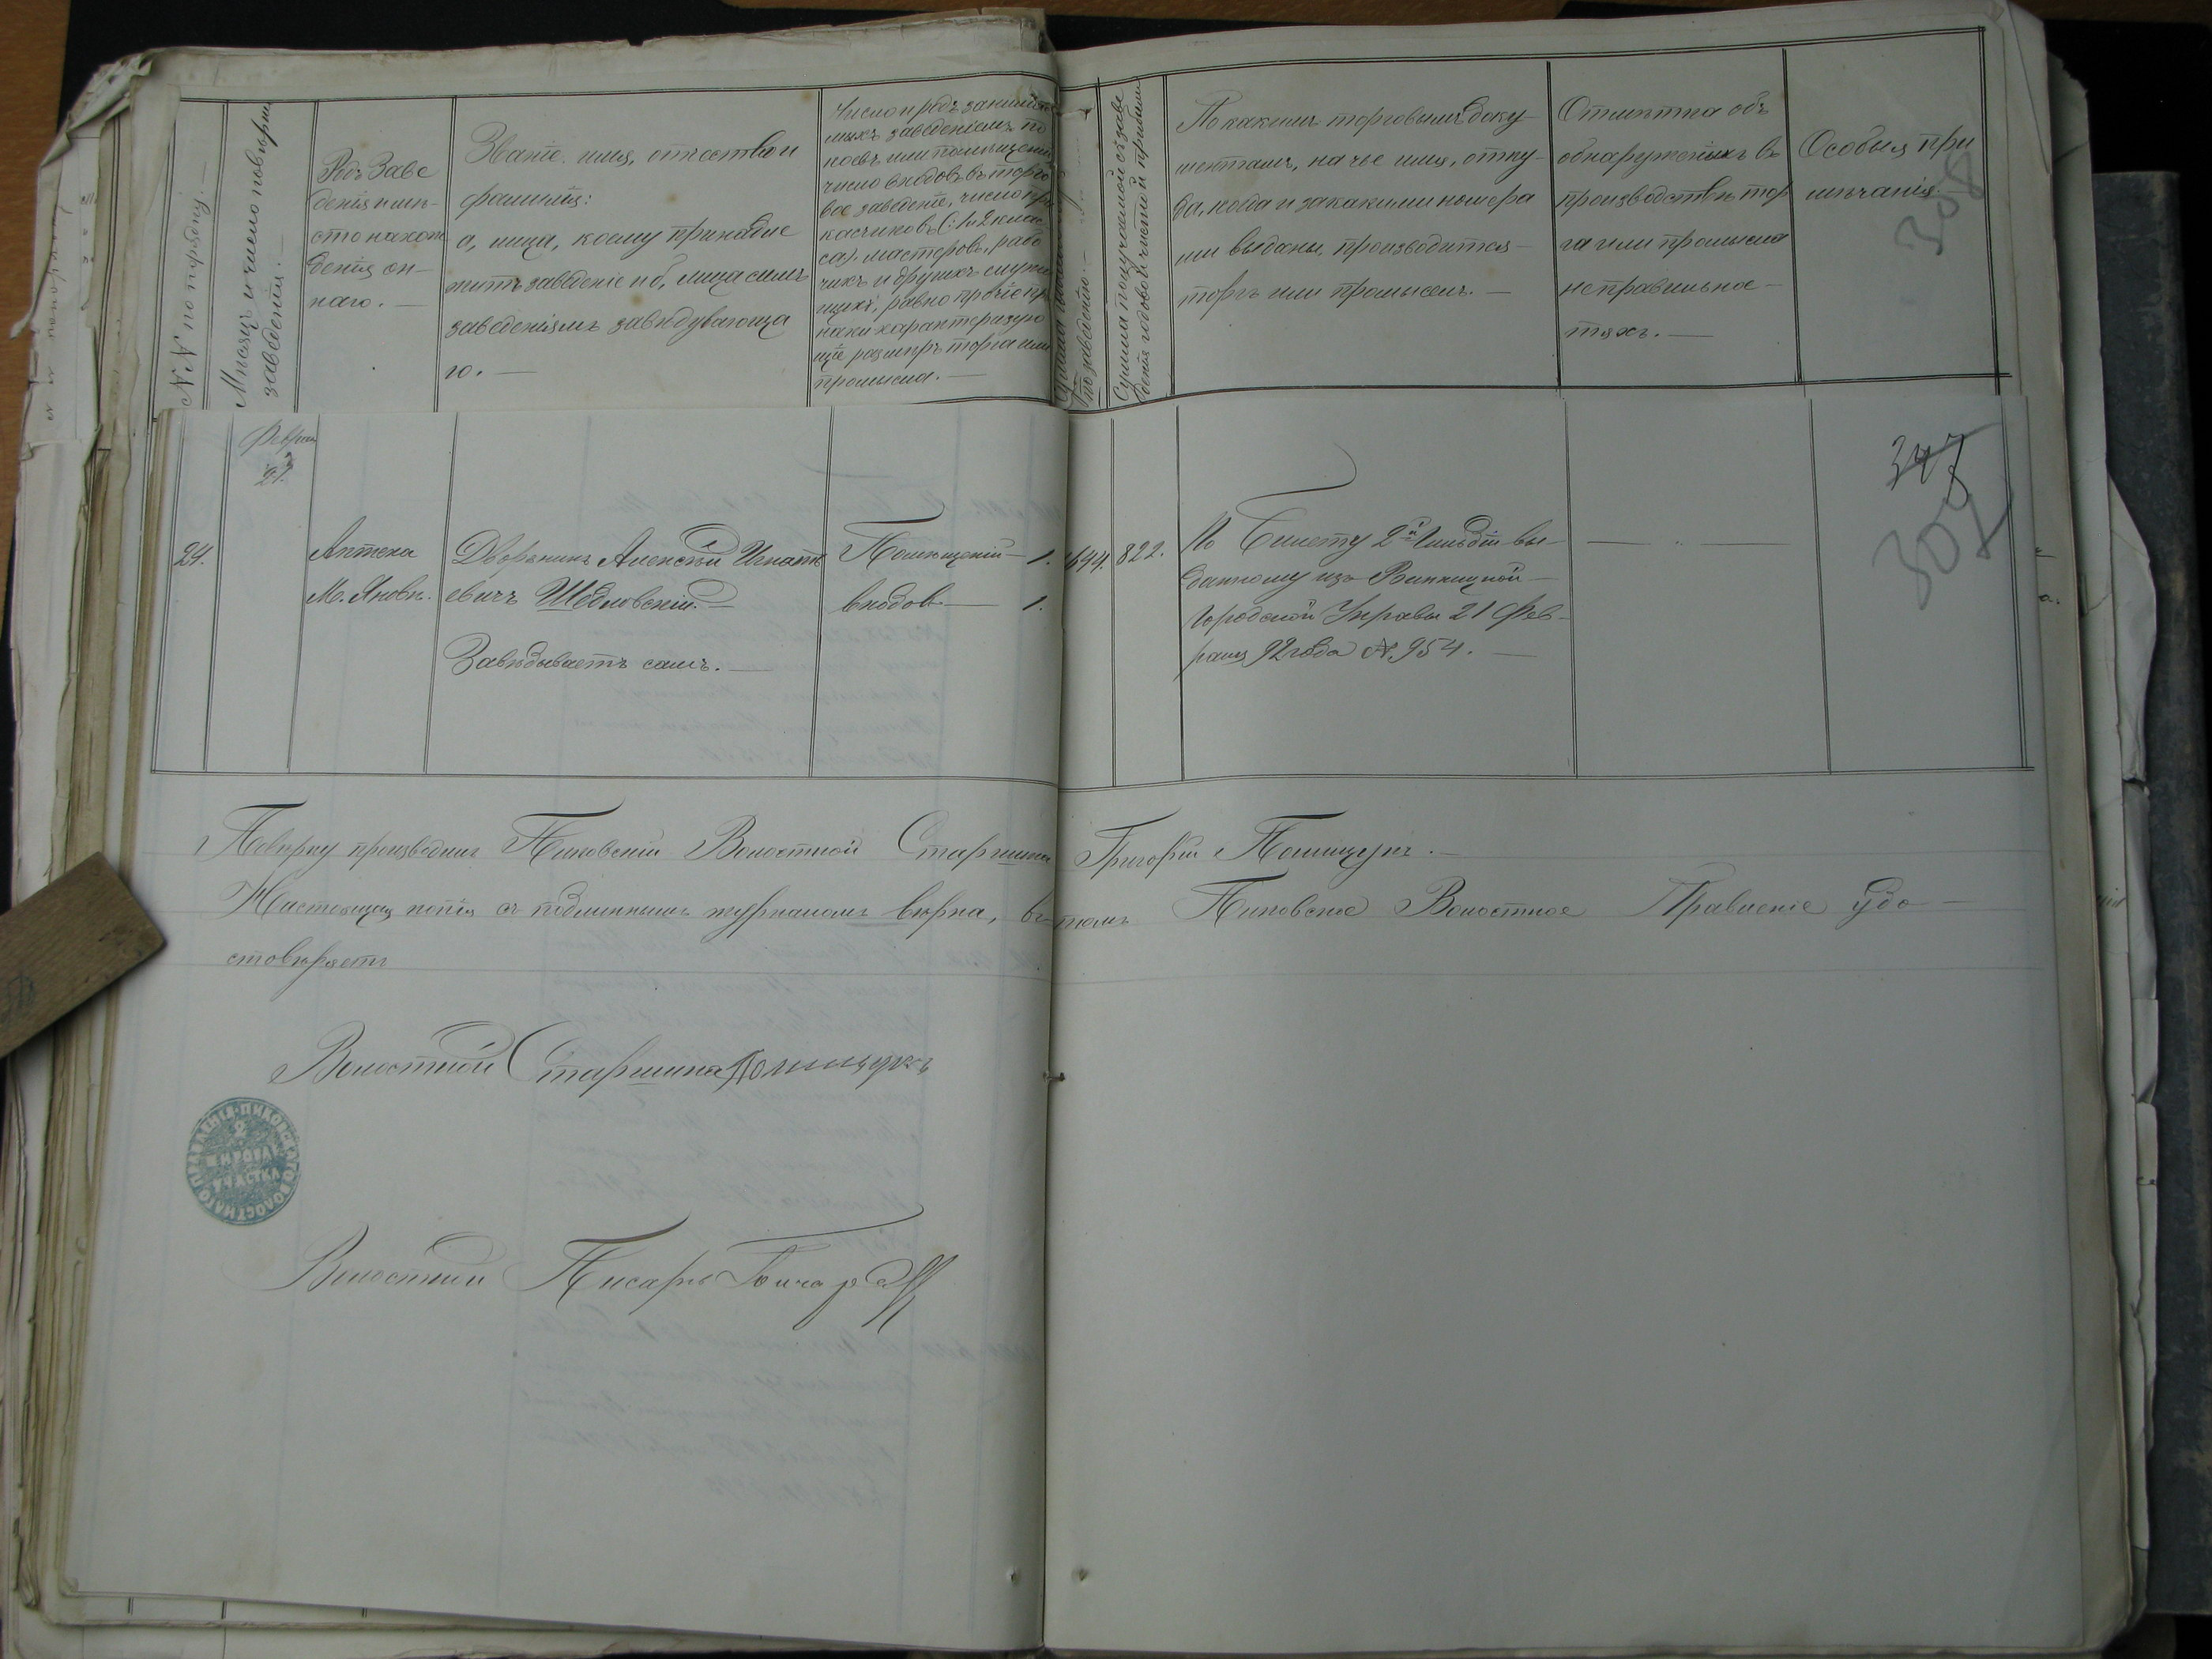 №№ по порядку. —
Мѣсяцъ и число повѣрки
заведенія. —
Родъ Заве
денія и мѣ-
сто нахож
денія он-
наго. —
Званіе, имя, отчество и
фамилія:
а, лица, коему принадле
житъ заведеніе и б, лица симъ
заведеніямъ завѣдывающа
го. —
Число и родъ занимае
мыхъ заведеніемъ по
коевъ или помѣщеній
число входовъ въ торго
вое заведеніе, число при
касчиковъ (: 1 и 2 клас
са). мастеровъ, рабо
чихъ и другихъ служа
щихъ, равно прочіе приз
наки характеризую
щіе размѣръ торга или
промысла. —
по заведенію. —
Сумма получаемой съ заве
денія годовой чистой прибыли
По какимъ торговымъ доку-
ментамъ, на чье имя, отку-
да, когда и за какими номера
ми выданы, производится
торгъ или промыселъ. —
Отмѣтка объ
обнаруженыхъ въ
производствѣ тор
га или промысла
неправильнос-
тяхъ. —
Особыя при
мѣчанія.
308
24.
Февраля
21.
Аптека
М. Яновъ.
Дворянинъ Алексѣй Игнать
евичъ Шедловскій. —
Завѣдываетъ самъ. —
Помѣщеній — 1.
входов — 1.
1644.
822.
По Билету 2й Гильдіи вы-
данному изъ Винницкой
Городской Управы 21 Фев-
раля 92 года №. 954. —
347
309
Повѣрку производилъ Пиковскій Волостной Старшина Григорій Полищукъ. —
Настоящая копія съ подлиннымъ журналомъ вѣрна, въ томъ Пиковское Волостное Правленіе удо-
стовѣряетъ
Волостной Старшина Полищукъ
ПИКОВСКАГО ВОЛОСТНАГО ПРАВЛЕНІЯ
2
МИРОВА
УЧАСТКА
Волостной Писарь